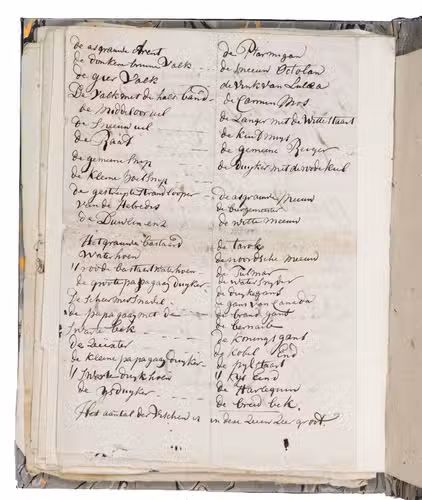 de asgraauwe Arent
de donker bruine Valk
de gier Valk
De Valk met de hals band
de Middelooruil
de Sneeuw uil
de Raaf
de gemeene Snip
de kleine Snip
de gestreepte Strandlooper
van de Hebrides
de
Het graauwe bastaard
Waterhoen
't roode bastaert Waterhoen
de groote papagaay duyker
de
de papagaay met de
zwarte bek
de
de kleine papagaay duyker
't Zwarte duyk hoen
de ysduyker
de Ptarmigan
de Sneeuw Ortolan
de Vink van Lulea
de
de Langer met de Witte staart
de
de gemeene Reiger
de Duyker met de roode keel
de asgraauwe Meeuw
de burgemeester
de witte meeuw
de tarok
de noordsche meeuw
de Fulmar
de Water Snyder
de Duykgans
de gans van Canada
de brand gans
de bernacle
de konings gans
de Eend
de pylstaart
't Eend
de Harlequin
de breed bek.
Het aantal der Visschen is in deze Zeeën Zeer groot.